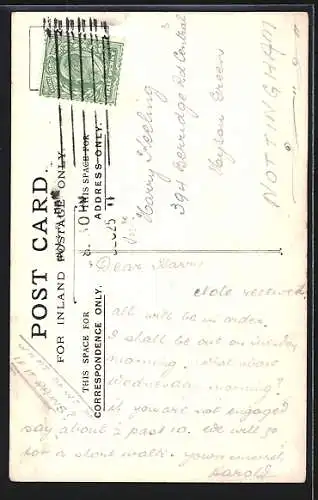 POST CARD.
FOR INLAND POSTAGE ONLY.
THIS SPACE FOR
ADDRESS ONLY.
THIS SPACE FOR
CORRESPONDENCE ONLY.
Harry Keeling
394 Berridge Rd Central
Hyson Green
NOTTINGHAM
Dear Harry
Note received
all will be in order.
I shall be out on
morning. What about
Wednesday morning?
if you are not engaged
say about ½ past 10. We will go
for a
Harold